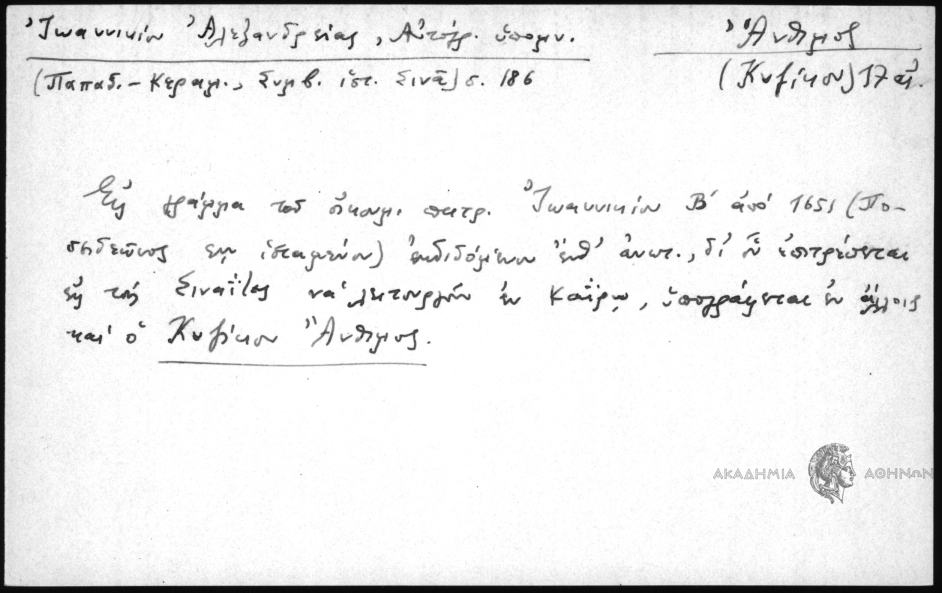 Ἰωαννικίου Ἀλεξανδρείας, Αὐτόγρ. ὑπομν.
Ἄνθιμος
(Παπαδ.-Κεραμ., Συμβ. ἱστ. Σινᾶ) σ. 186
(Κυζίκου) 17 αἰ.
Εἰς γράμμα τοῦ οἰκουμ. πατρ. Ἰωαννικίου Β' ἀπό 1651 (Πο-
ἱσταμένου) ἐκδιδόμενον ἔνθ' ἀνωτ., δι' οὗ ἐπιτρέπεται
εἰς τούς Σιναΐτας νά λειτουργοῦν ἐν Καΐρῳ, ὑπογράφεται ἐν ἄλλοις
καί ὁ Κυζίκου Ἄνθιμος.
ΑΚΑΔΗΜΙΑ ΑΘΗΝΩΝ